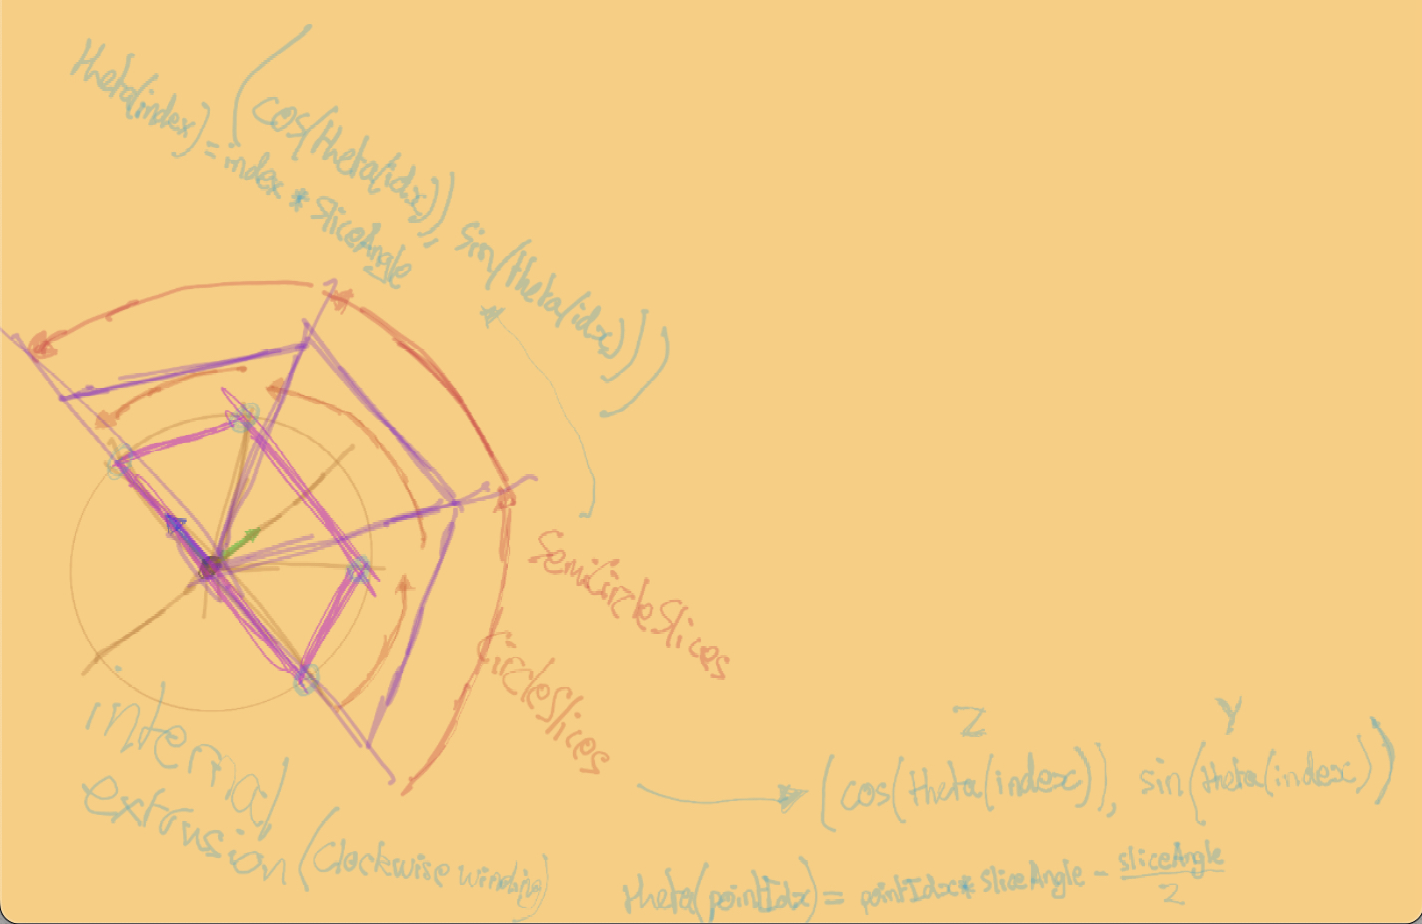 (cos(theta(idx)), sin(theta(idx)))
theta(index) = index * sliceAngle
SemiCircleSlices
CircleSlices
internal
extrusion (clockwise winding)
Z Y
(cos(theta(index)), sin(theta(index)))
theta(pointIdx) = pointIdx * sliceAngle - sliceAngle
2